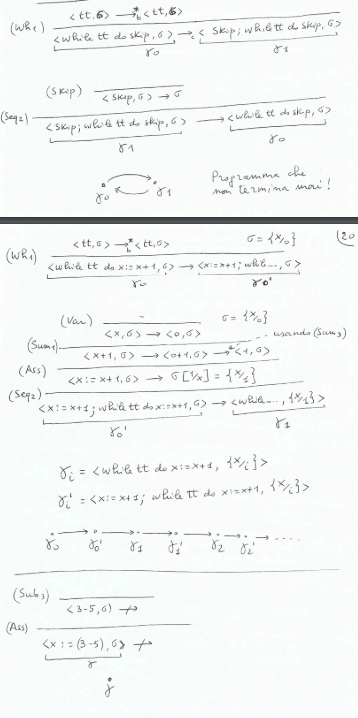 <tt,σ> →*b <tt,σ>
(Wh1)
<while tt do skip, σ> →c <skip; while tt do skip, σ>
γ0 γ1
(Skip)
<skip, σ> → σ
(Seq2)
<skip; while tt do skip, σ> → <while tt do skip, σ>
γ1 γ0
γ0 γ1
Programma che
non termina mai!
20
<tt,σ> →*b <tt,σ> σ = {x/0}
(Wh1)
<while tt do x:=x+1, σ> → <x:=x+1; while..., σ>
γ0 γ0'
(Var) – σ = {x/0}
<x,σ> → <0,σ>
(Sum1) ... usando (Sum3)
<x+1,σ> → <0+1,σ> → <1,σ>
(Ass)
<x:=x+1,σ> → σ[1/x] = {x/1}
(Seq2)
<x:=x+1; while tt do x:=x+1,σ> → <while..., {x/1}>
γ0' γ1
γi = <while tt do x:=x+1, {x/i}>
γi' = <x:=x+1; while tt do x:=x+1, {x/i}>
γ0 → γ0' → γ1 → γ1' → γ2 → γ2' → .....
(Sub3)
<3-5,σ) ↛
(Ass)
<x:=(3-5),σ> ↛
γ
γ